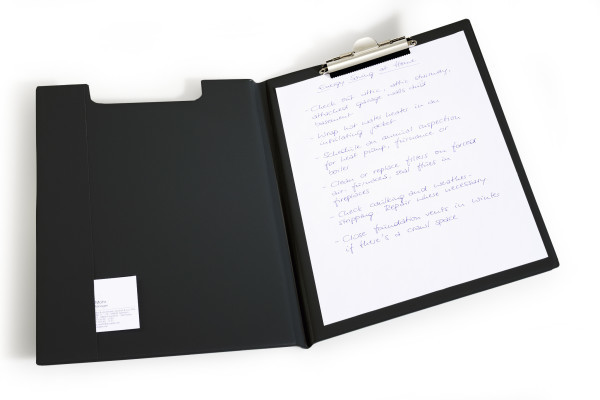 Energy Saving at Home
- Check out attic, attic stairway,
attached garage walls and
basement
- Wrap hot water heater in an
insulating jacket
- Schedule an annual inspection
for heat pump, furnace or
boiler
- Clean or replace filters on forced
air furnaces, seal flues in
fireplaces
- Check caulking and weather-
stripping. Repair where necessary.
- Close foundation vents in winter
if there's a crawl space